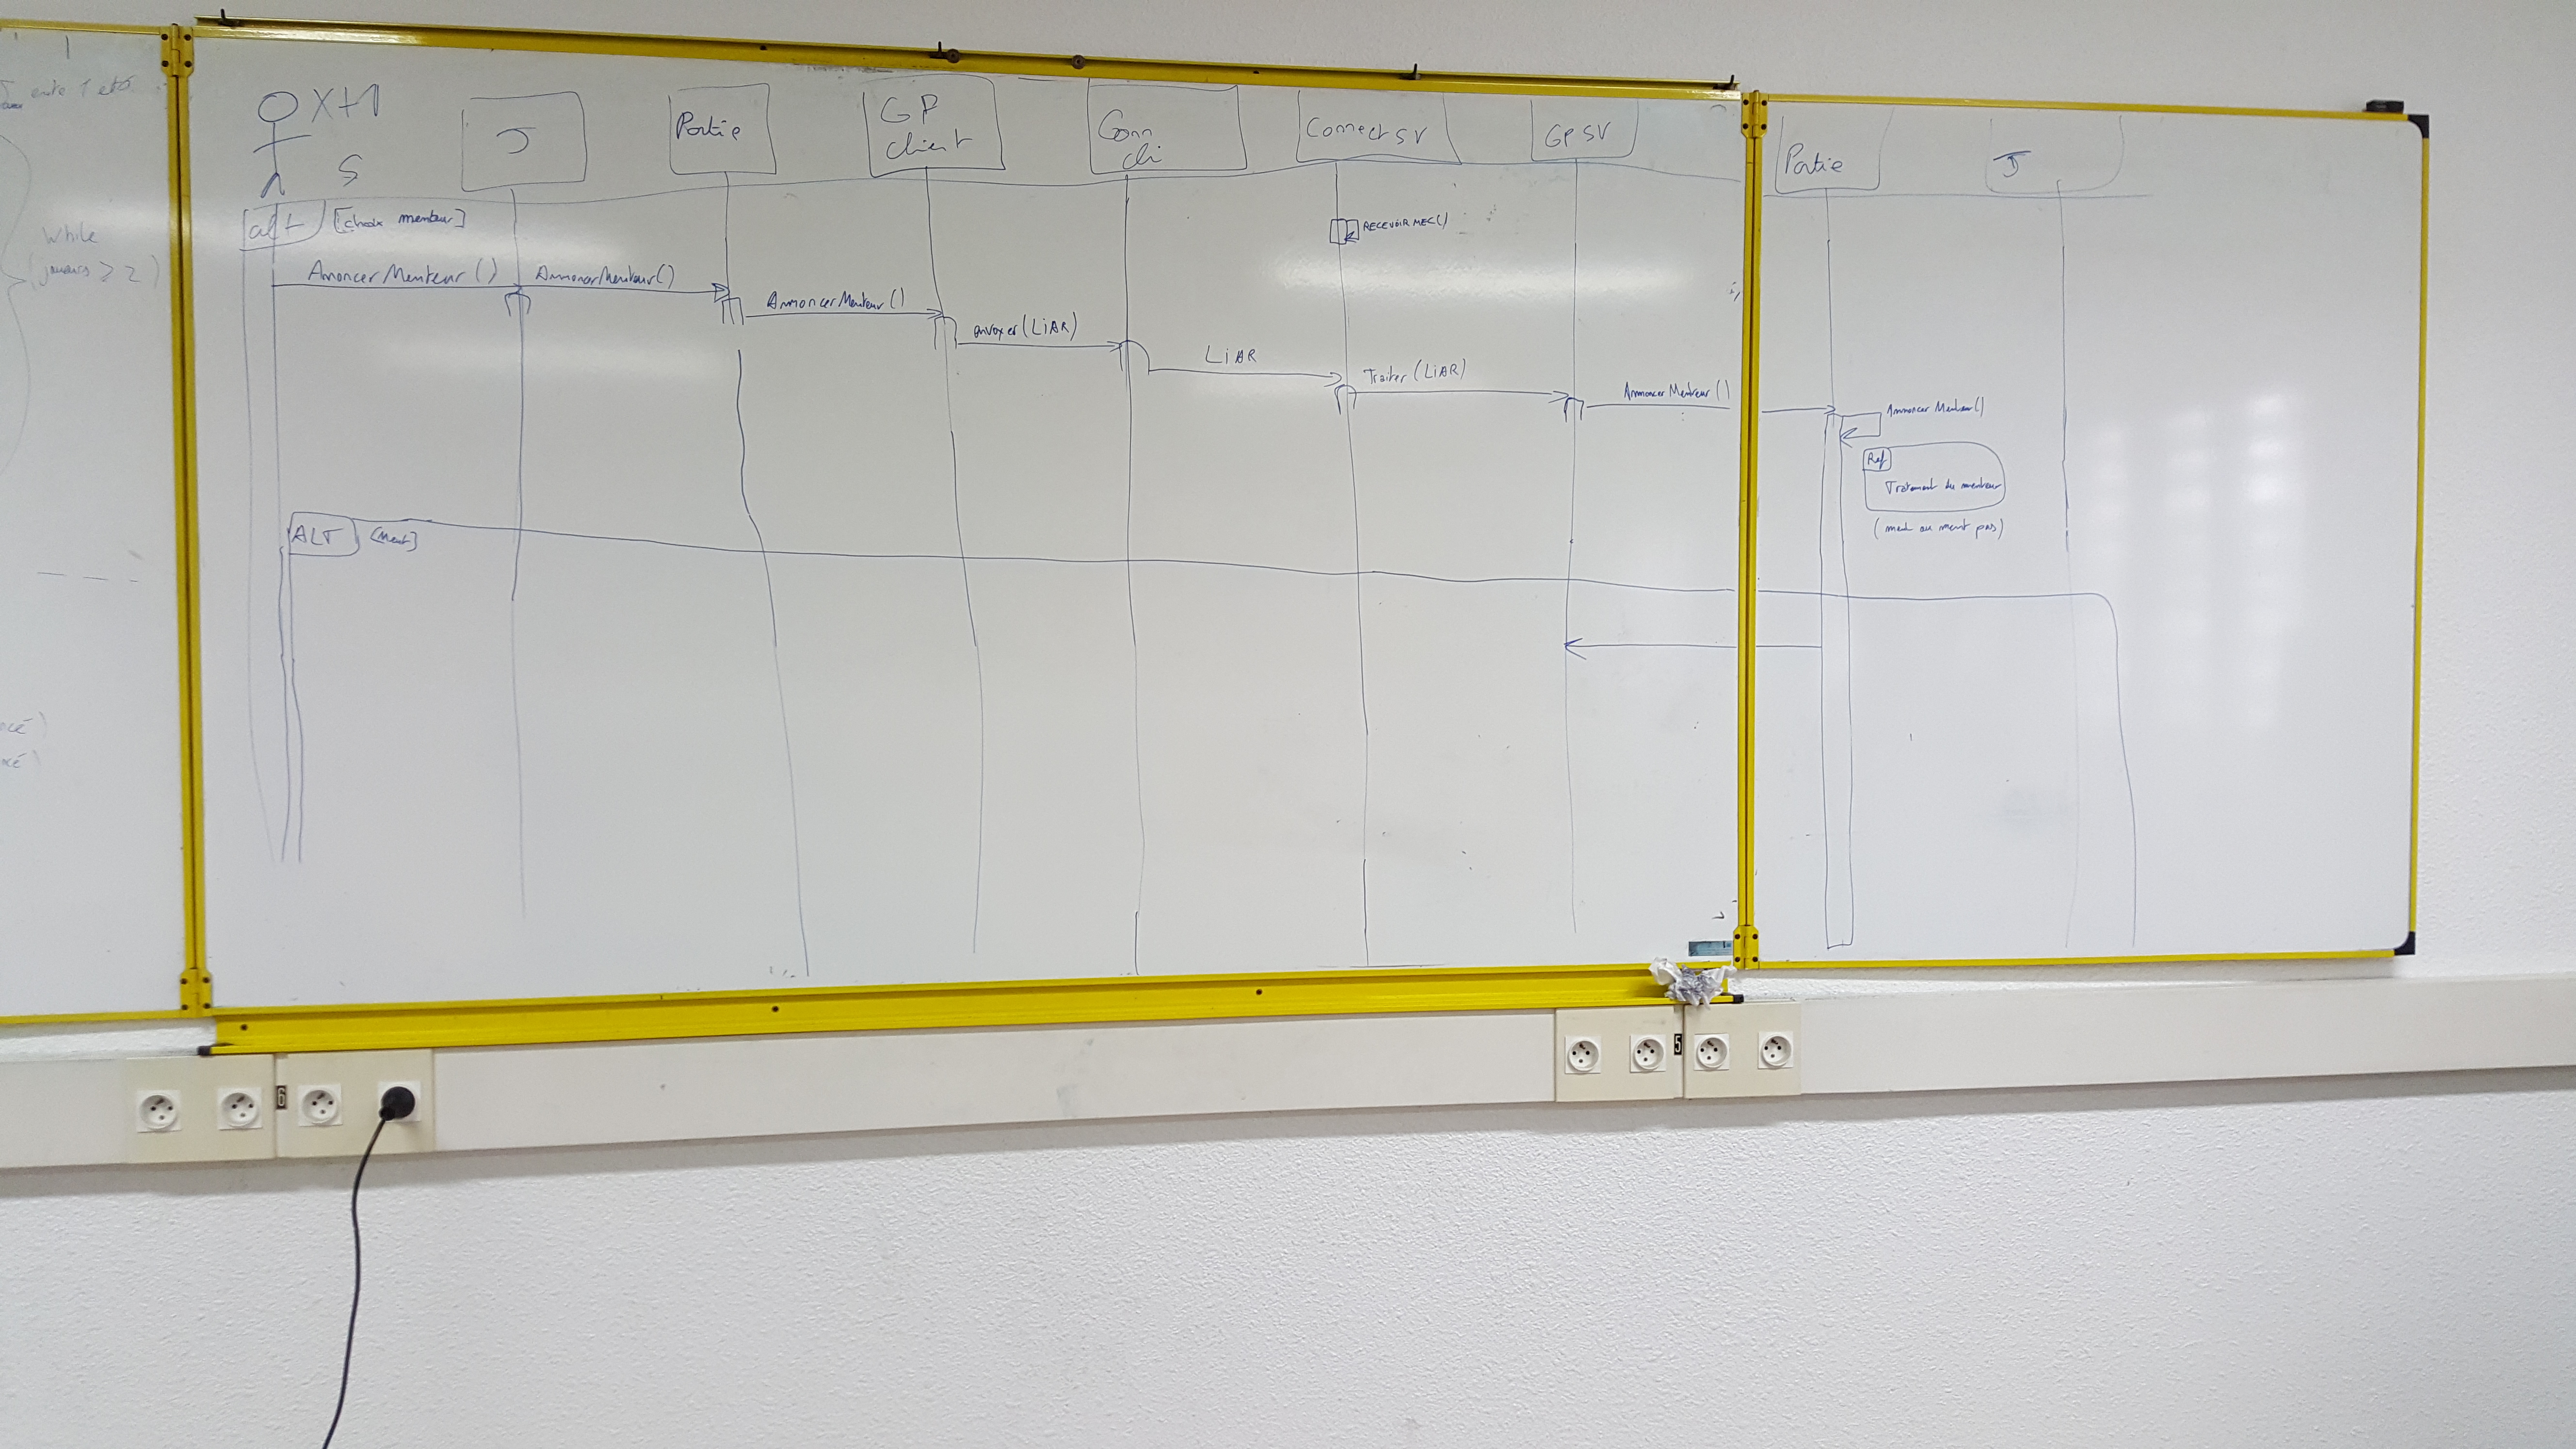 entre 1 et 6
While
(joueurs ≥ 2)
X+1
S
J
Partie
GP
client
Conn
cli
Connect SV
GP SV
Partie
J
alt [choix menteur]
RECEVOIR MEC()
AnoncerMenteur ()
AnnoncerMenteur()
AnnoncerMenteur ()
envoyer(LiAR)
LiAR
Traiter (LiAR)
AnnoncerMenteur ()
Annoncer Menteur()
Ref
Traitement du menteur
(ment ou ment pas)
ALT [Ment]
6
5